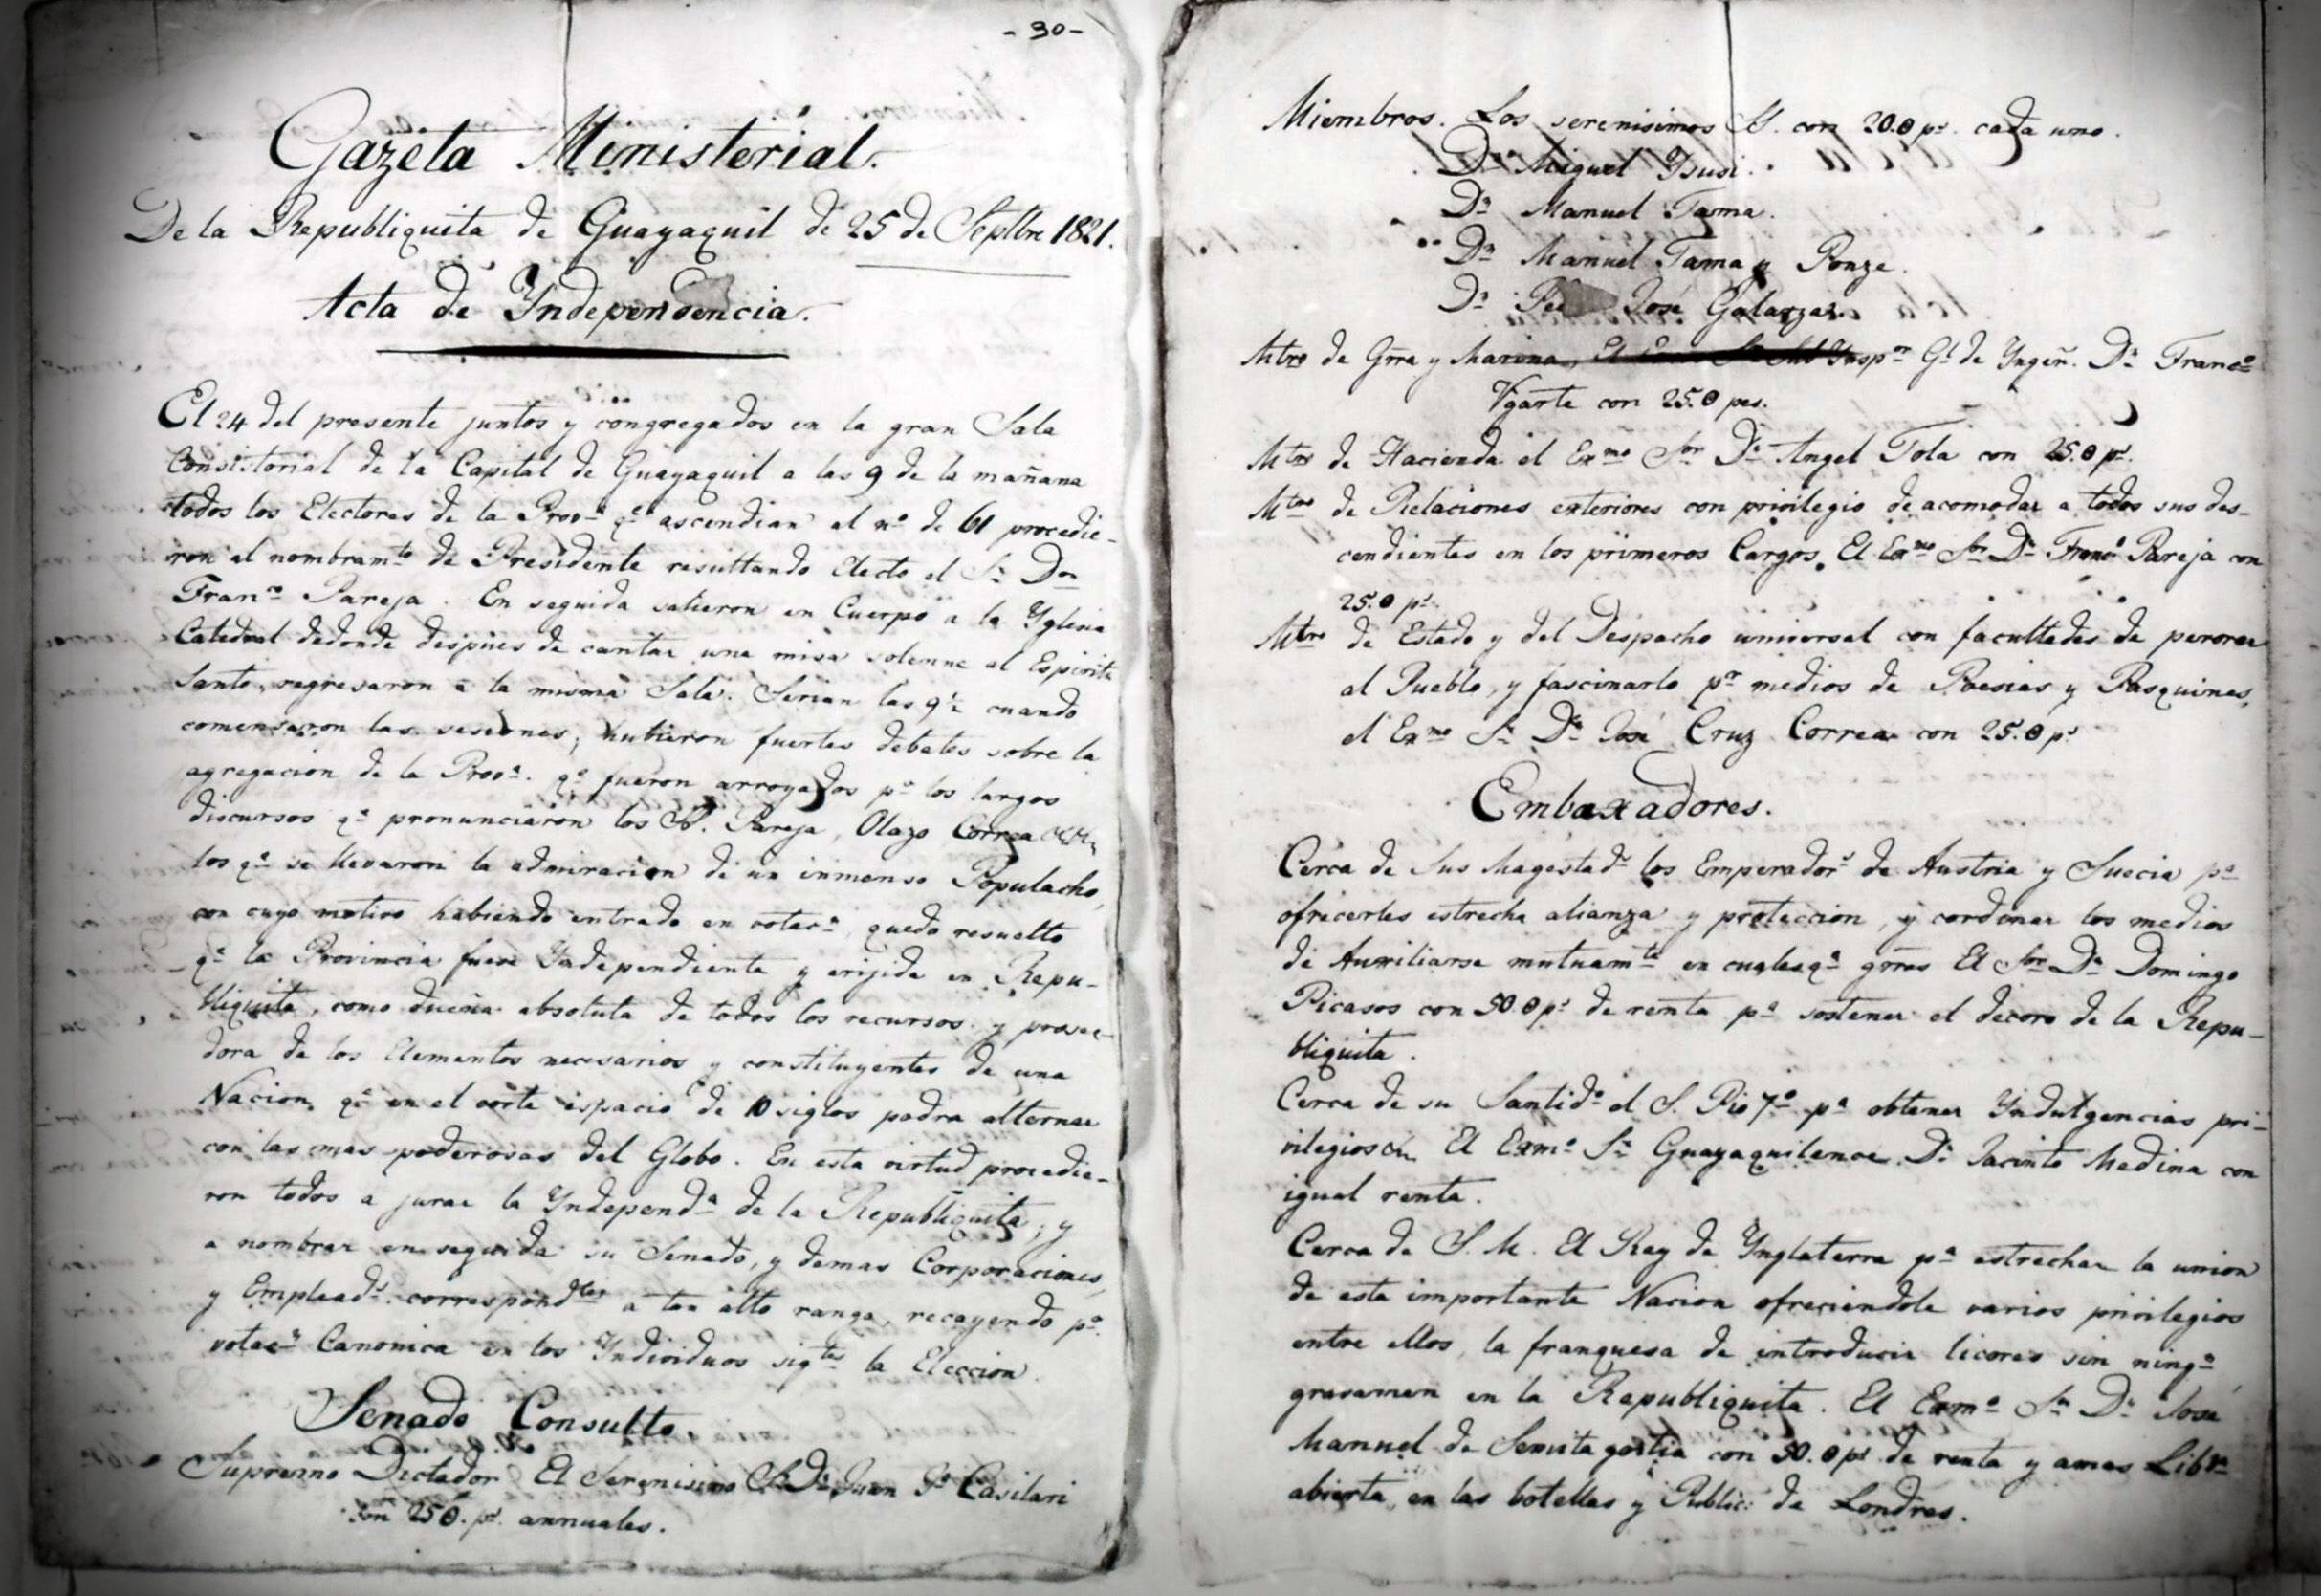 - 30 -
Gazeta Ministerial.
De la Republiquita de Guayaquil de 25 de Septbre 1821.
Acta de Yndependencia.
El 24 del presente juntos y congregados en la gran Sala
Consistorial de la Capital de Guayaquil a las 9 de la mañana
todos los Electores de la Prov.ª q.e ascendian al n.º de 61 procedie-
ron al nombram.to de Presidente resultando Electo el S.r Don
Fran.co Pareja. En seguida salieron en Cuerpo a la Yglesia
Catedral dedonde despues de cantar una misa solemne al Espiritu
Santo, regresaron a la misma Sala. Serian las 9½ cuando
comensaron las sesiones; hubieron fuertes debates sobre la
agregacion de la Prov.ª q.e fueron arroyados p.r los largos
discursos q.e pronunciaron los SS. Pareja, Olazo Correa
los q.e se llevaron la admiracion de un inmenso Populacho,
con cuyo motivo habiendo entrado en votac.n quedo resuelto
q.e la Provincia fuese Yndependiente y erijida en Repu-
bliquita, como dueña absoluta de todos los recursos y provee-
dora de los Elementos necesarios y constituyentes de una
Nacion, q.e en el corto espacio de 10 siglos podra alternar
con las mas poderosas del Globo. En esta virtud procedie-
ron todos a jurar la Yndepend.ª de la Republiquita, y
a nombrar en seguida su Senado, y demas Corporaciones,
y Emplead.s correspond.tes a tan alto rango, recayendo p.r
votac.n Canonica en los Yndividuos sig.tes la Eleccion.
Senado Consulto.
Supremo Dictador El Serenisimo S.r D.n Juan J.e Casilari
con 250. p.s annuales.
Miembros. Los serenisimos SS. con 20.0 p.s cada uno.
D.n Miguel Ysusi.
D.n Manuel Tama.
D.n Manuel Tama y Ponze.
D.n José Galarza.
Mtro de Grra y Marina, Ynsp.or G.l de Yngeñ. D.n Fran.co
Vgarte con 25.0 pes.
Mtro de Hacienda el Ex.mo S.or D.n Angel Tola con 25.0 p.s
Mtro de Relaciones exteriores con privilegio de acomodar a todos sus des-
cendientes en los primeros Cargos. El Ex.mo S.or D.n Fran.co Pareja con
25.0 p.s
Mtro de Estado y del Despacho universal con facultades de perorar
al Pueblo, y fascinarlo p.r medios de Poesias y Pasquines,
el Ex.mo S.r D.n José Cruz Correa con 25.0 p.s
Embaxadores.
Cerca de Sus Magestad.s los Emperador.s de Austria y Suecia p.ª
ofrecerles estrecha alianza y proteccion, y cordinar los medios
de Auxiliarse mutuam.te en cualesq.ª grras El S.or D.n Domingo
Picasos con 50.0 p.s de renta p.ª sostener el decoro de la Repu-
bliquita.
Cerca de su Santid.d el S. Pio 7.º p.ª obtener Yndulgencias pri-
vilegios El Exm.º S.r Guayaquilence D.n Jacinto Medina con
igual renta.
Cerca de S. M. El Rey de Ynglaterra p.ª estrechar la union
de esta importante Nacion ofreciendole varios privilegios
entre ellos, la franquesa de introducir licores sin ning.n
gravamen en la Republiquita. El Exm.º S.r D.n José
Manuel de con 50.0 p.s de renta y amas Libr.ª
abierta, en las botellas y Public: de Londres.